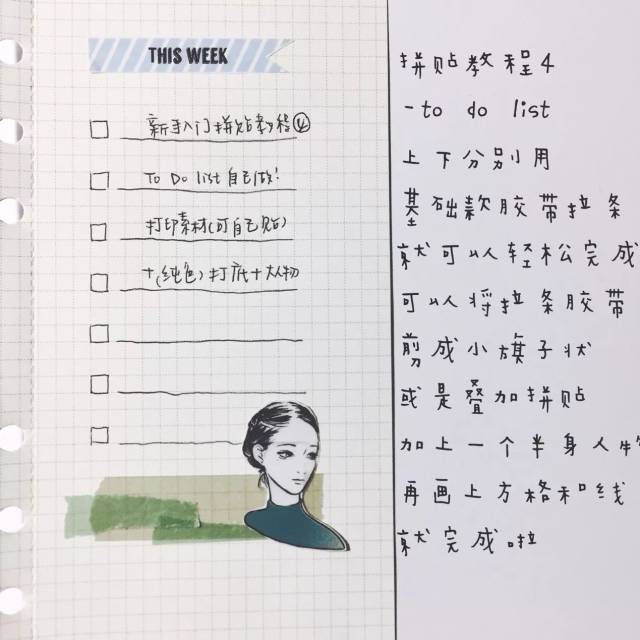 THIS WEEK
新手入门拼贴教程④
To Do list 自己做!
打印素材(可自己贴)
+(纯色)打底+人物
拼贴教程4
-to do list
上下分别用
基础款胶带拉条
就可以轻松完成
可以将拉条胶带
剪成小旗子状
或是叠加拼贴
加上一个半身人物
再画上方格和线
就完成啦